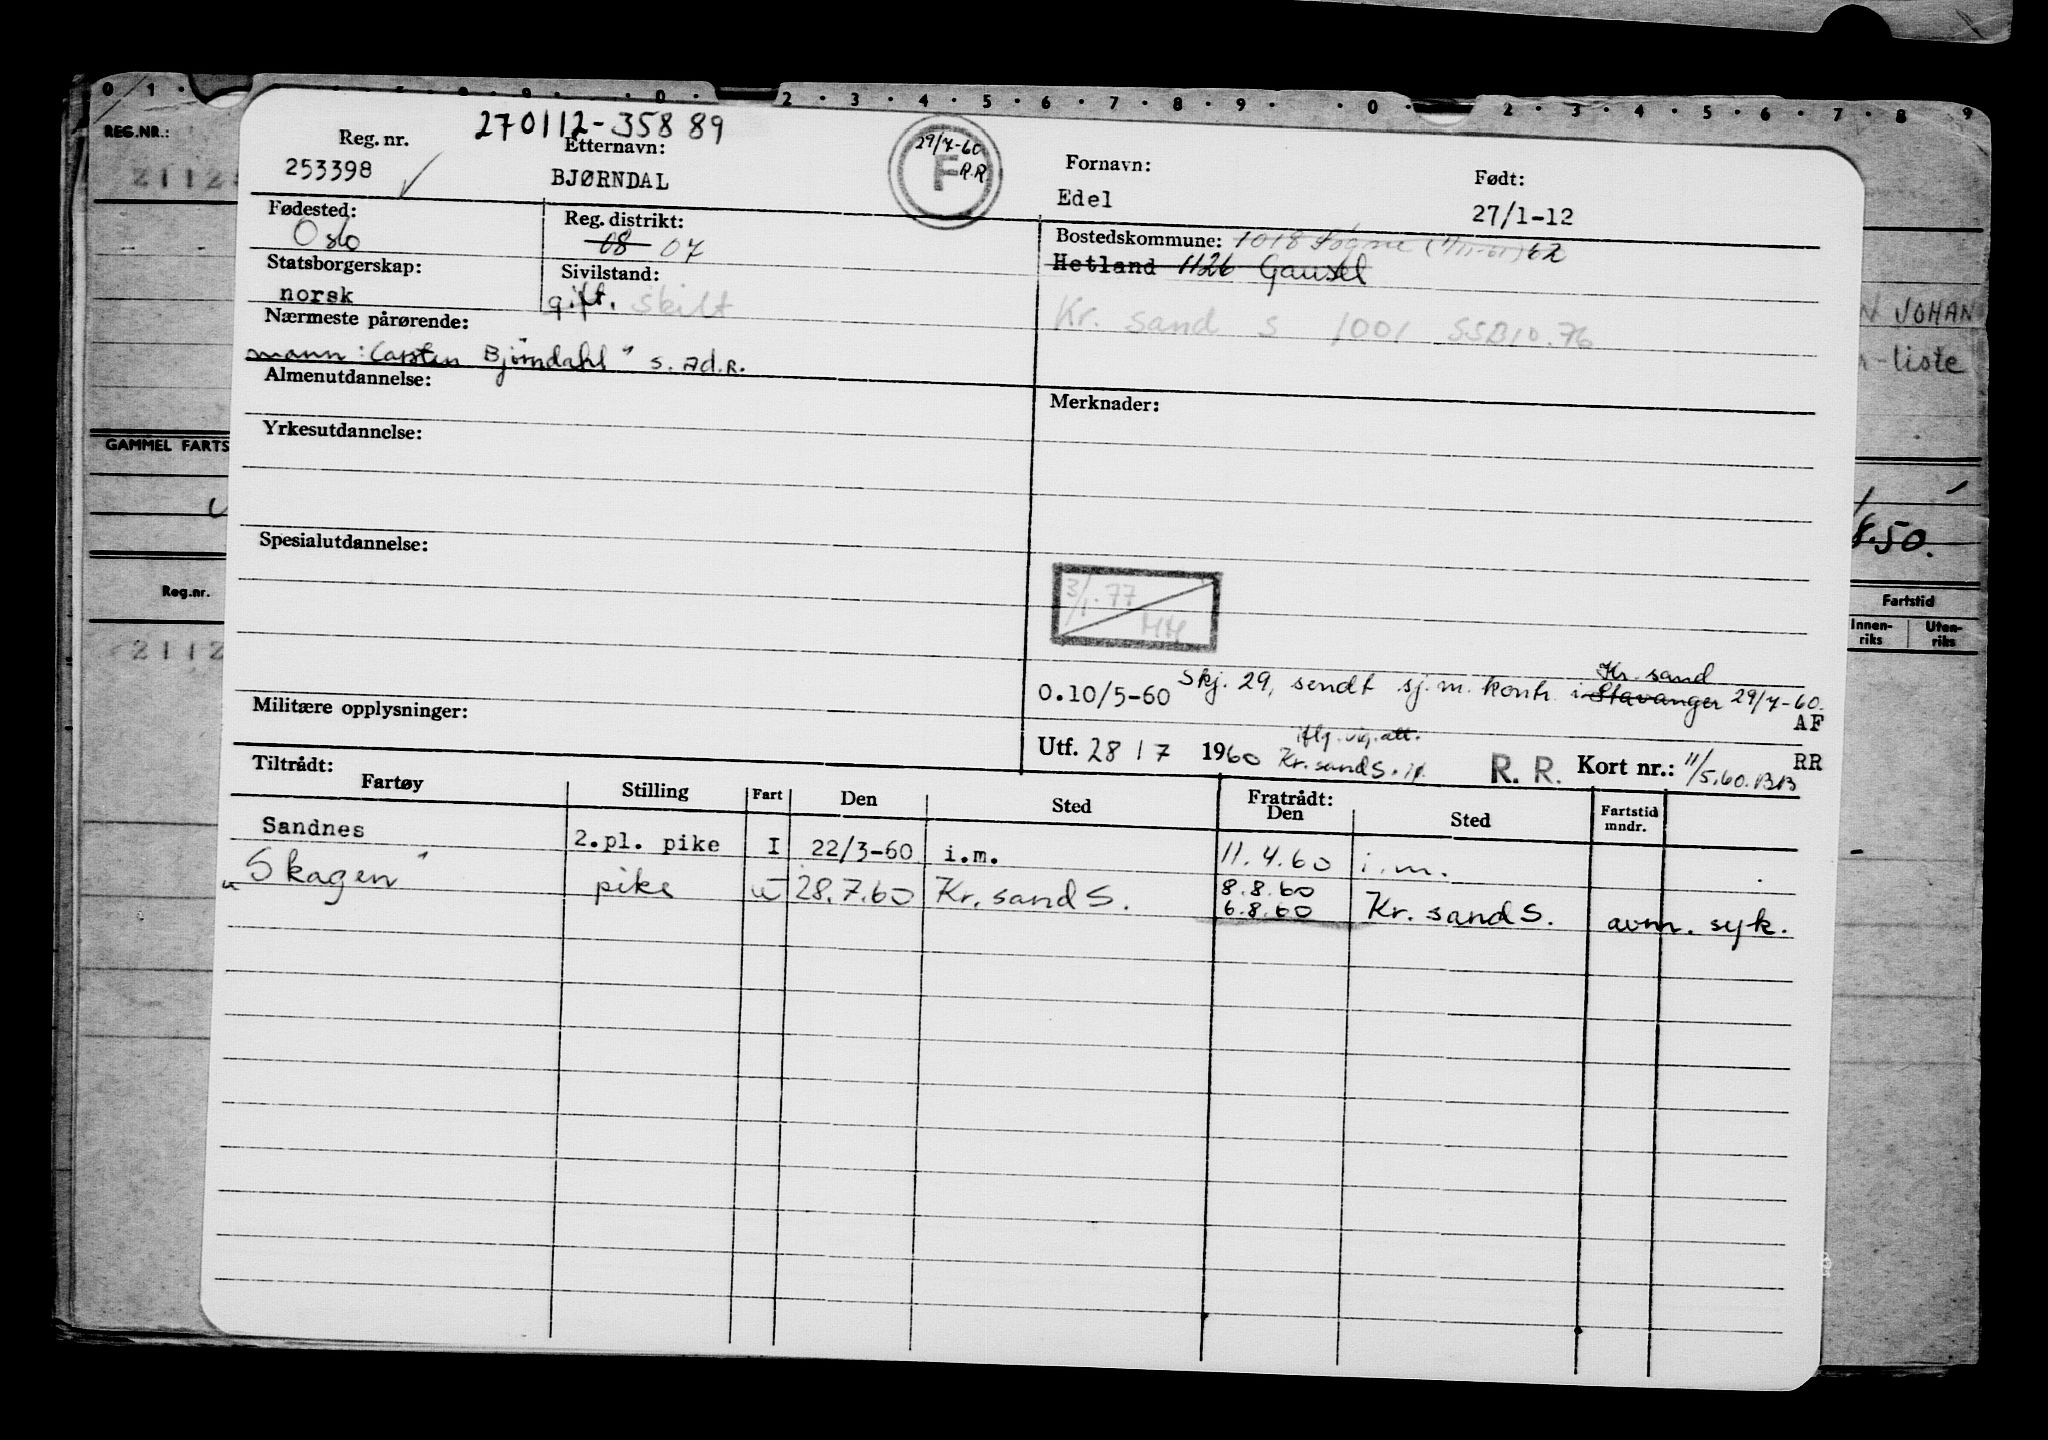 0 1 2 3 4 5 6 7 8 9 0 2 3 4 5 6 7 8 9
REG.NR.:
2112
270112-35889
Reg. nr.
253398
Etternavn:
BJØRNDAL
29/7-60
F R.R
Fornavn:
Edel
Født:
27/1-12
Fødested:
Oslo
Reg. distrikt:
08 07
Bostedskommune: 1018 Søgne
Hetland 1126 Gausel
Statsborgerskap:
norsk
Sivilstand:
gift. skilt
Kr. sand S 1001 SSB10.76
Nærmeste pårørende:
mann: Carsten Bjørndahl s. ad.R.
Almenutdannelse:
Merknader:
Yrkesutdannelse:
Spesialutdannelse:
3/1.77
HH
Kr. sand
0.10/5-60 Skj. 29, sendt sj.m. kontr. i Stavanger 29/7-60.
AF
Militære opplysninger:
iflg. vig. att.
Utf. 28 / 7 1960 Kr. sand S. R. R. Kort nr.: 11/5.60.BB RR
Tiltrådt:
Fartøy Stilling Fart Den Sted Fratrådt: Den Sted Fartstid mndr.
Sandnes 2.pl. pike I 22/3-60 i.m. 11.4.60 i.m.
"Skagen" pike U 28.7.60 Kr. sand S. 8.8.60 6.8.60 Kr. sand S. avm. syk.
GAMMEL FARTS
Reg.nr.
2112
N JOHAN
-liste
8.50.
Fartstid
Innen-riks Uten-riks